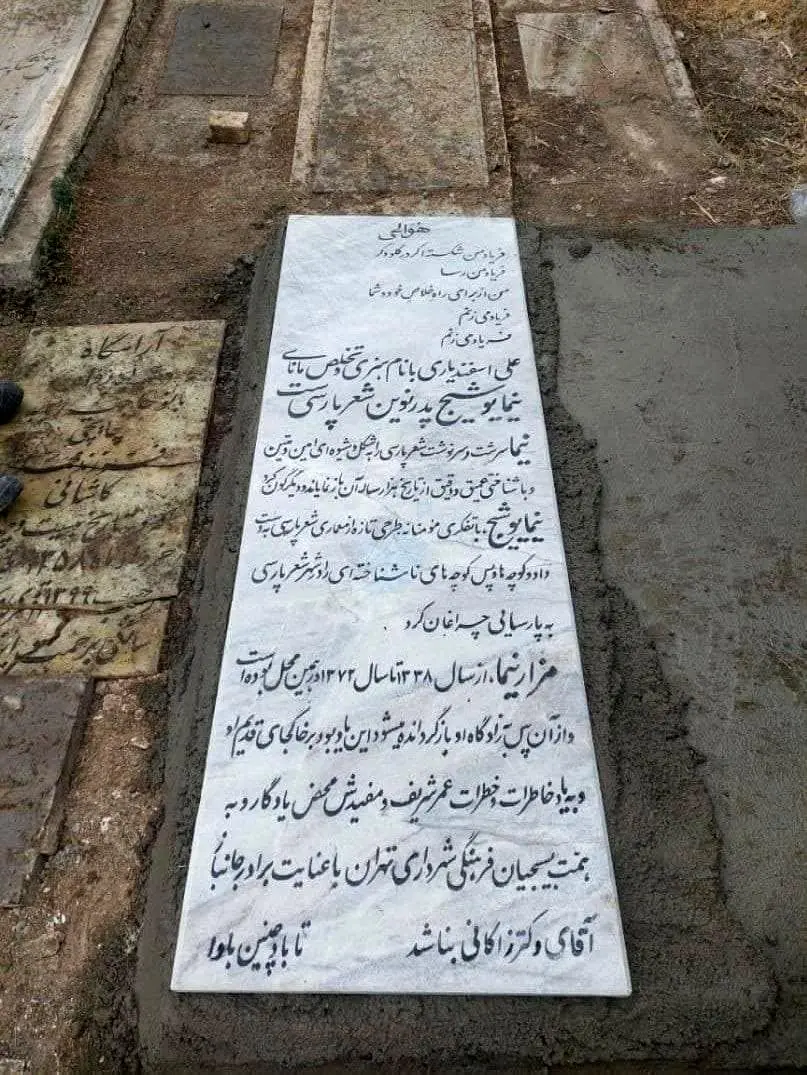 هوالحی
فریاد من شکسته اگر در گلو وگر
فریاد من رسا
من از برای راه خلاص خود و شما
فریاد می زنم
فریاد می زنم
علی اسفندیاری با نام سبزی و تخلص مانای
نیما یوشیج پدر نوین شعر پارسی است
نیما سرشت و سرنوشت شعر پارسی را به شکل و شیوه ای امین و متین
و با شناختی عمیق و دقیق از تاریخ هزار ساله آن باز نمایاند و دیگرگون کرد
نیما یوشیج، با تفکری مؤمنانه طرحی تازه از معماری شعر پارسی به دست
داد و کوچه ها و پس کوچه های ناشناخته ای را در شهر شعر پارسی
به پارسایی چراغان کرد
مزار نیما، از سال ۱۳۳۸ تا سال ۱۳۷۲ در همین محل بوده است
و از آن پس به زادگاه او بازگردانده میشود این یادبود بر خاکجای قدیم او
و به یاد خاطرات و خطرات عمر شریف و مفیدش محض یادگار و به
همت بسیجیان فرهنگی شهرداری تهران با عنایت برادر جانباز
آقای دکتر زاکانی بنا شد تا باد چنین بادا
آرامگاه
کاشانی